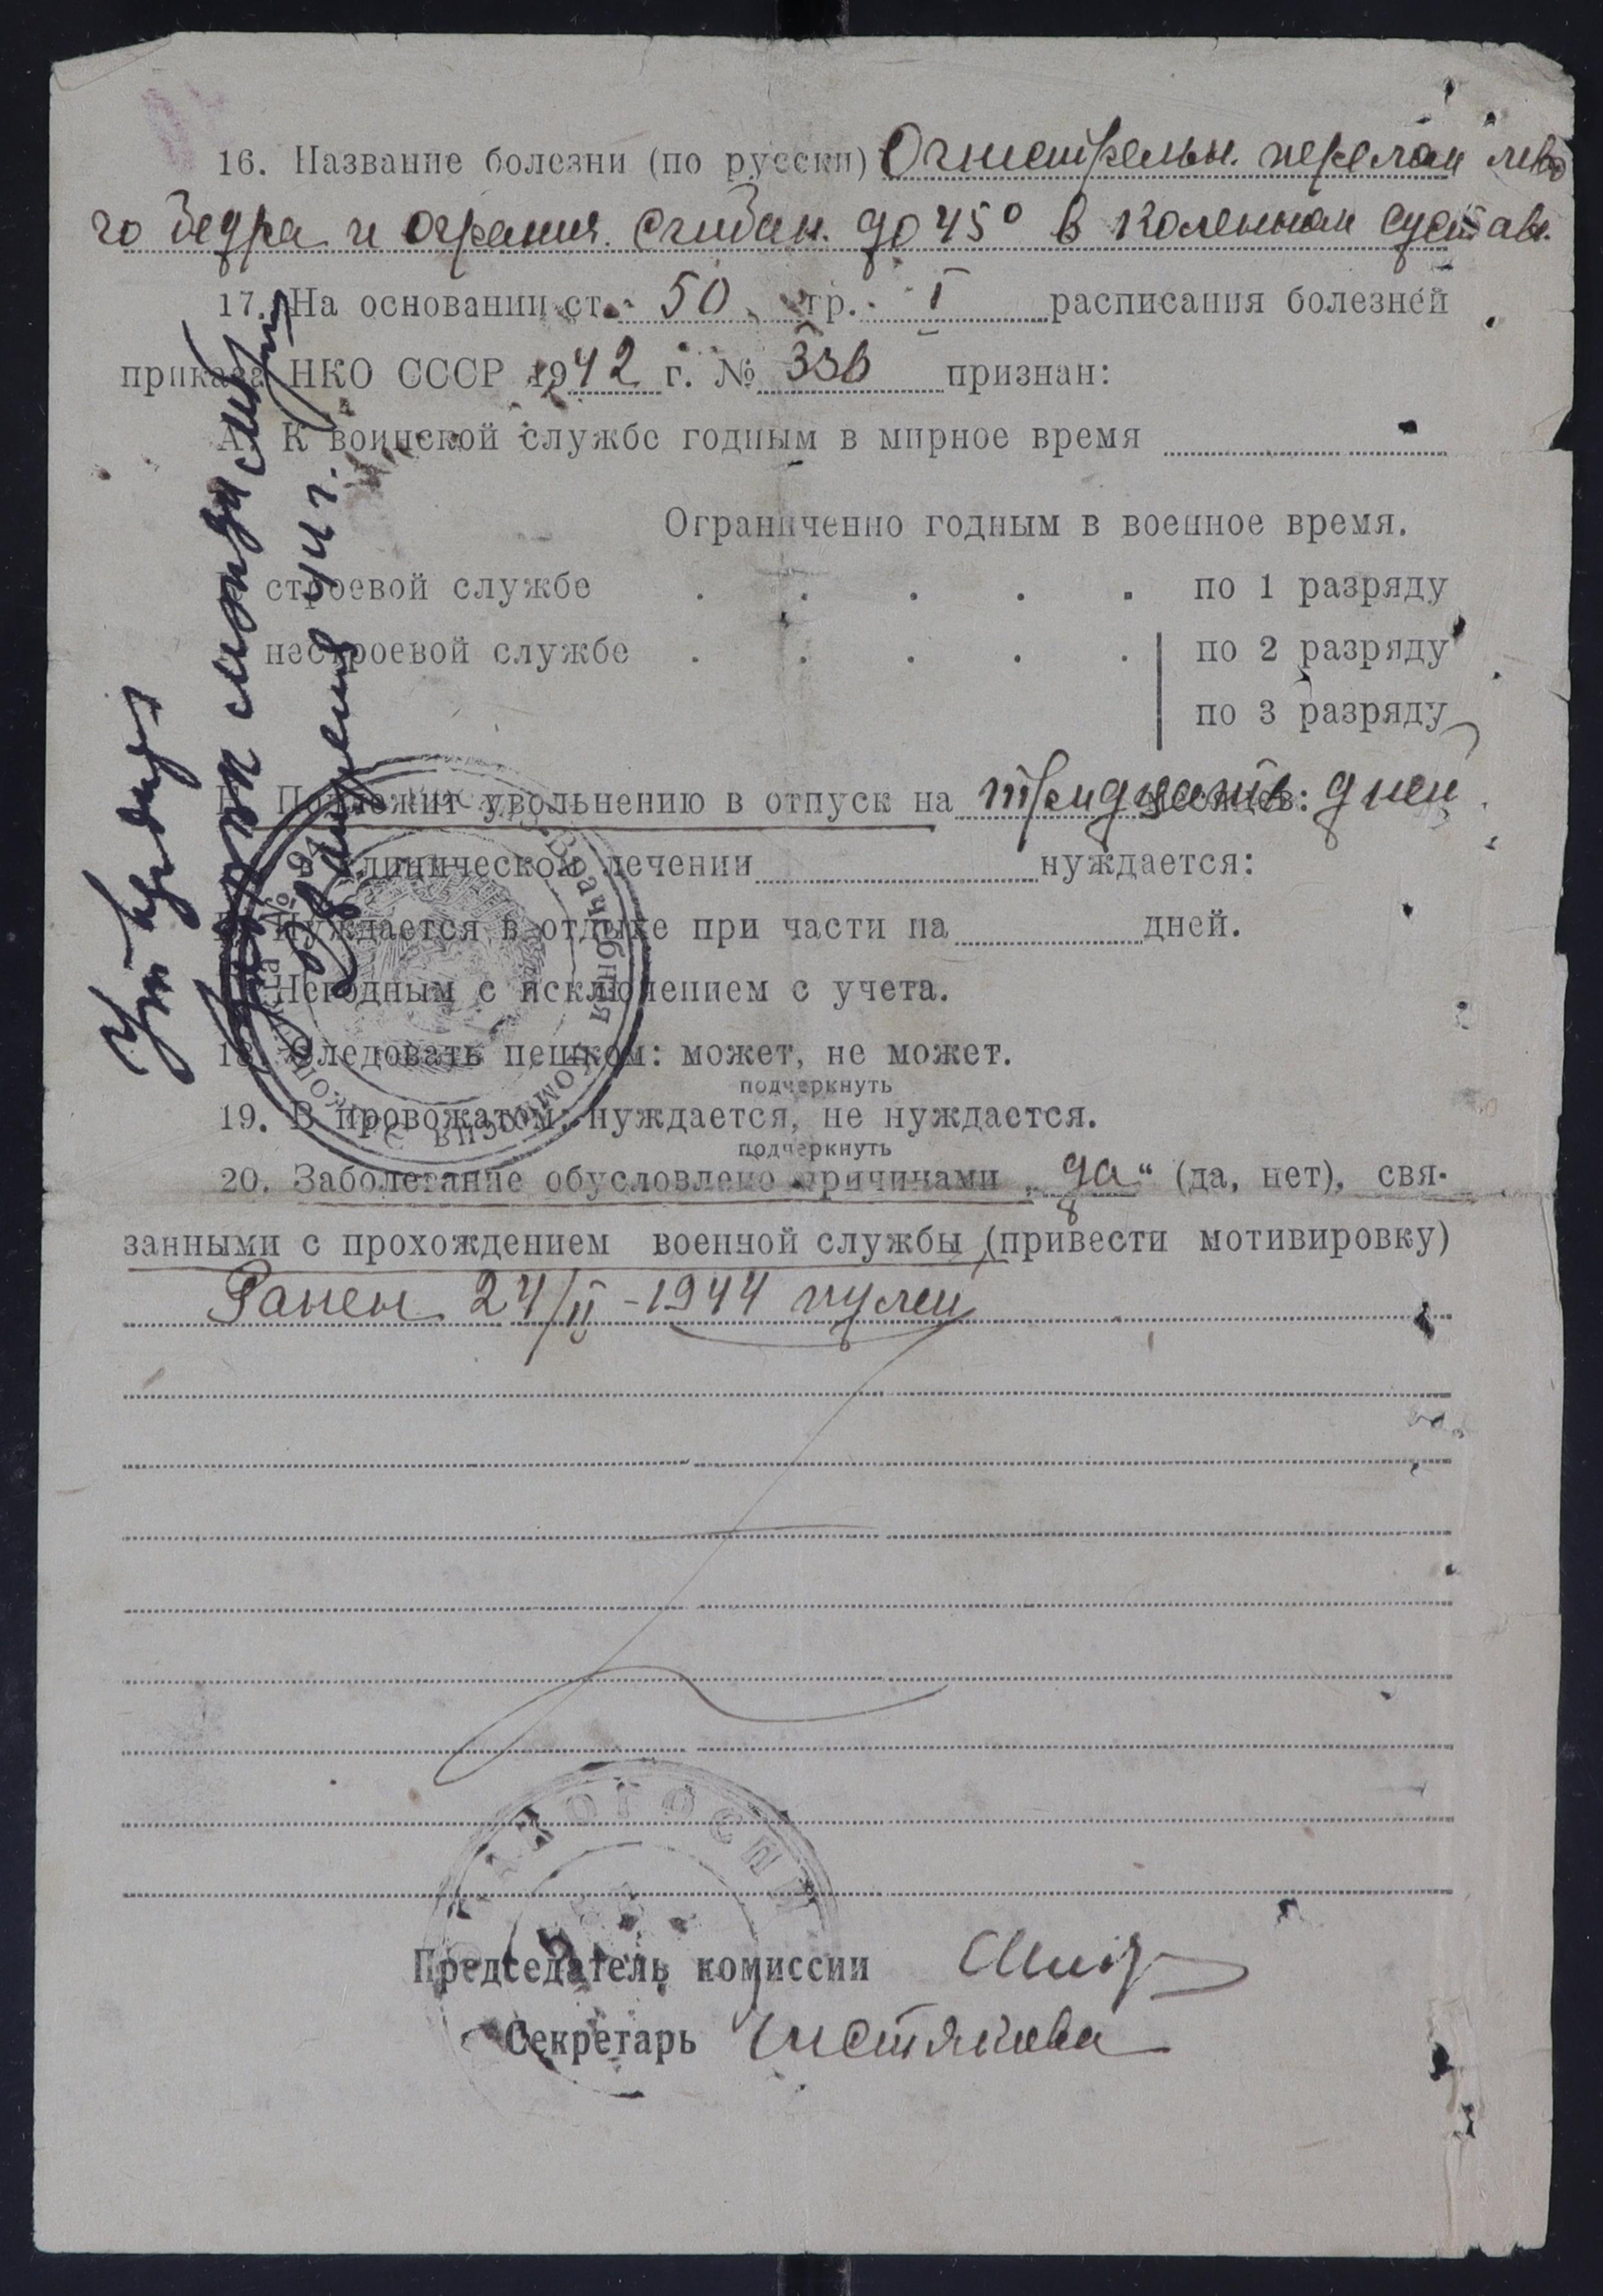 16. Название болезни (по русски) Огнестрельн. перелом лево
го бедра и огранич. сгибан. до 45° в коленном суставе.
17. На основании ст. 50 гр. I расписания болезней
приказа НКО СССР 1942 г. № 336 признан:
А. К воинской службе годным в мирное время
Ограниченно годным в военное время.
строевой службе . . . . . по 1 разряду
нестроевой службе . . . . . по 2 разряду
по 3 разряду
Подлежит увольнению в отпуск на тридцать месяцев: дней
в клиническом лечении нуждается:
Нуждается в отдыхе при части на дней.
Негодным с исключением с учета.
18. Следовать пешком: может, не может.
подчеркнуть
19. В провожатом: нуждается, не нуждается.
подчеркнуть
20. Заболевание обусловлено причинами „да“ (да, нет), свя-
занными с прохождением военной службы (привести мотивировку)
Ранен 24/II-1944 пулей
Председатель комиссии
Секретарь Чистякова
Врачебная комиссия